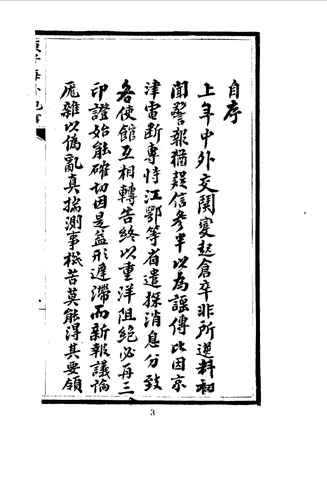 自序
上年中外交鬨變起倉卒非所逆料初
聞警報猶疑信參半以為謠傳比因京
津電斷專恃江鄂等省遣探消息分致
各使館互相轉告終以重洋阻絕必再三
印證始能確切因是益形遲滯而新報議論
厖雜以偽亂真揣測事機苦莫能得其要領
3